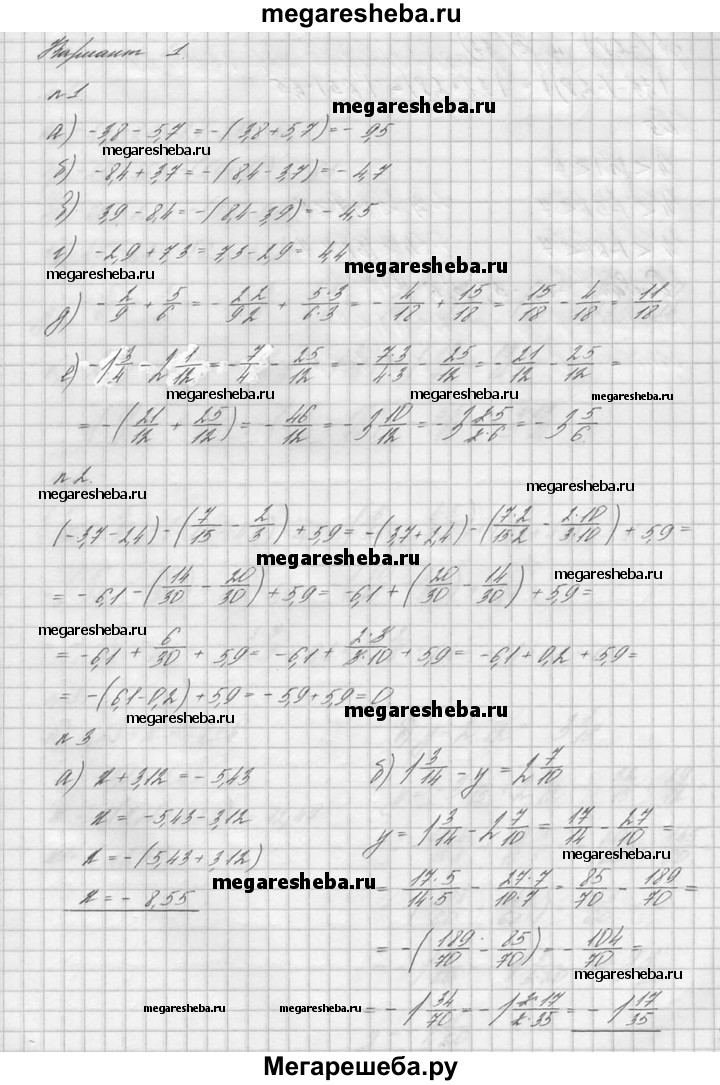 megaresheba.ru
Вариант 1.
№1
megaresheba.ru
а) -3,8 - 5,7 = -(3,8 + 5,7) = - 9,5
megaresheba.ru
б) -8,4 + 3,7 = -(8,4 - 3,7) = - 4,7
в) 3,9 - 8,4 = -(8,4 - 3,9) = - 4,5
г) -2,9 + 7,3 = 7,3 - 2,9 = 4,4
megaresheba.ru
megaresheba.ru
д) - 2/9 + 5/6 = - 2·2/9·2 + 5·3/6·3 = - 4/18 + 15/18 = 15/18 - 4/18 = 11/18
е) -1 3/4 - 2 1/12 = - 7/4 - 25/12 = - 7·3/4·3 - 25/12 = - 21/12 - 25/12 =
megaresheba.ru megaresheba.ru megaresheba.ru
= -(21/12 + 25/12) = - 46/12 = - 3 10/12 = - 3 2·5/2·6 = - 3 5/6.
№2.
megaresheba.ru
megaresheba.ru
(-3,7 - 2,4) - (7/15 - 2/3) + 5,9 = -(3,7 + 2,4) - (7·2/15·2 - 2·10/3·10) + 5,9 =
megaresheba.ru
megaresheba.ru
= - 6,1 - (14/30 - 20/30) + 5,9 = -6,1 + (20/30 - 14/30) + 5,9 =
megaresheba.ru
= -6,1 + 6/30 + 5,9 = -6,1 + 2·3/3·10 + 5,9 = -6,1 + 0,2 + 5,9 =
= -(6,1 - 0,2) + 5,9 = - 5,9 + 5,9 = 0
megaresheba.ru
megaresheba.ru
№3
а) x + 3,12 = - 5,43
x = -5,43 - 3,12
x = -(5,43 + 3,12)
x = - 8,55
megaresheba.ru
б) 1 3/14 - y = 2 7/10
y = 1 3/14 - 2 7/10 = 17/14 - 27/10 =
megaresheba.ru
= 17·5/14·5 - 27·7/10·7 = 85/70 - 189/70 =
= -(189/70 - 85/70) = - 104/70 =
megaresheba.ru
= - 1 34/70 = - 1 2·17/2·35 = - 1 17/35
megaresheba.ru megaresheba.ru megaresheba.ru
Мегарешеба.ру